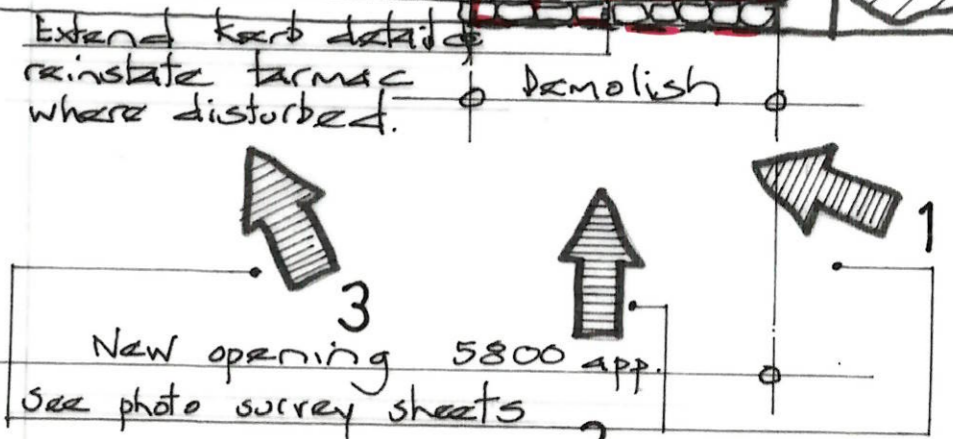 Extend kerb details
reinstate tarmac
where disturbed.
Demolish
1
3
New opening 5800 app.
see photo survey sheets
2